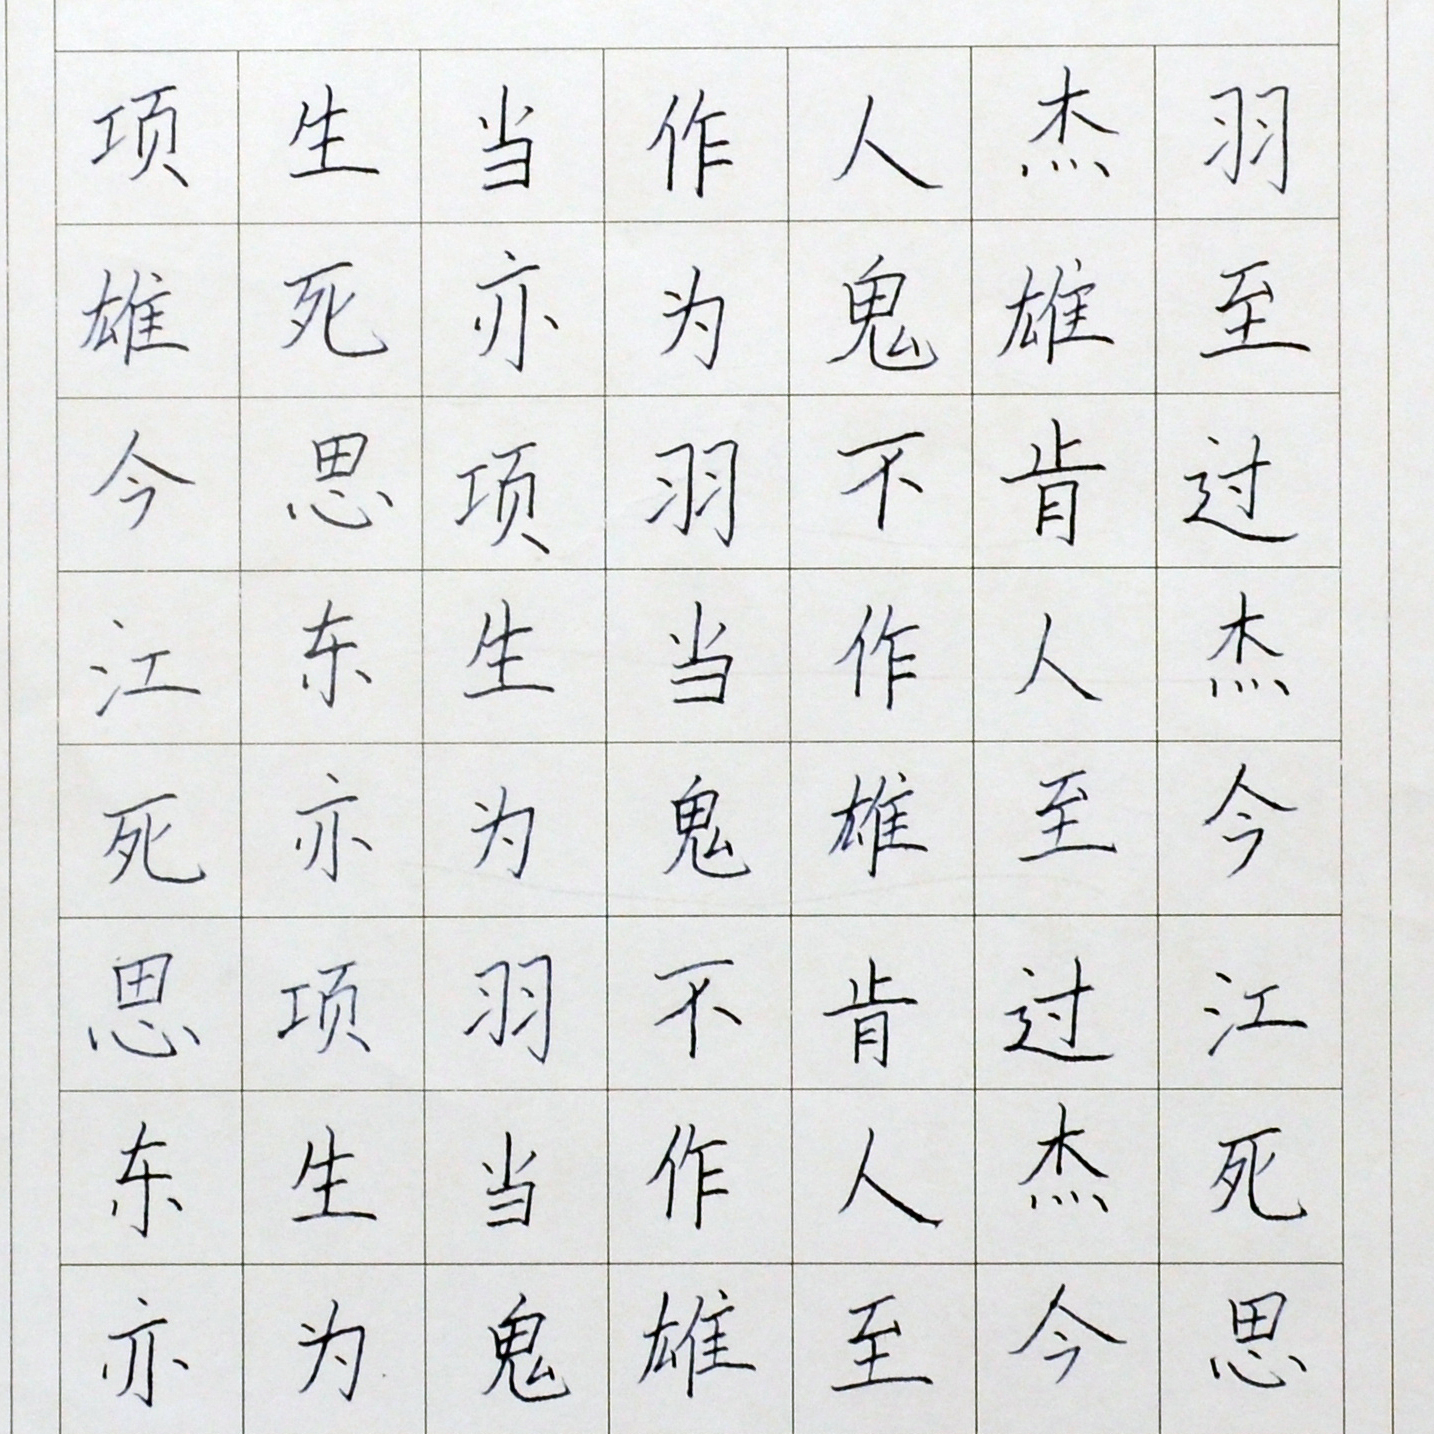 项生当作人杰羽
雄死亦为鬼雄至
今思项羽不肯过
江东生当作人杰
死亦为鬼雄至今
思项羽不肯过江
东生当作人杰死
亦为鬼雄至今思